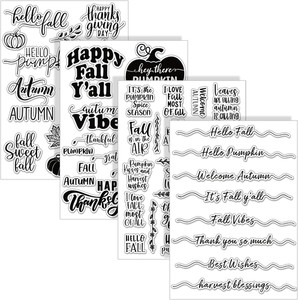 hello fall
happy
thanksgiving
DAY
HELLO
Pumpkin
Autumn
AUTUMN
fall
Sweet
fall
Happy
Fall
Y'all
autumn
Vibes
Thankful
PUMPKIN
AUTUMN
FALL
HAPPY
Thanksgiving
hey there
PUMPKIN
IT'S the
PUMPKIN
Spice
SEASON
FALL
is in the
AIR
Pumpkin
kisses and
Harvest
wishes
I LOVE
FALL
MOST
of ALL
HELLO
FALL
I LOVE
FALL
MOST
of ALL
Welcome
AUTUMN
Leaves
are falling
autumn
is calling
Hello Fall
Hello Pumpkin
Welcome Autumn
It's Fall y'all
Fall Vibes
Thank you so much
Best Wishes
harvest blessings